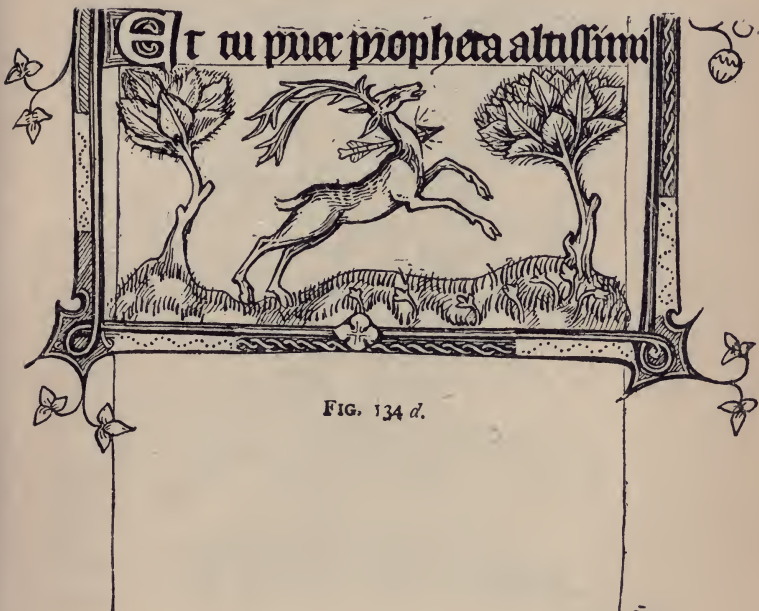 Et tu puer propheta altissimi
FIG. 134 d.